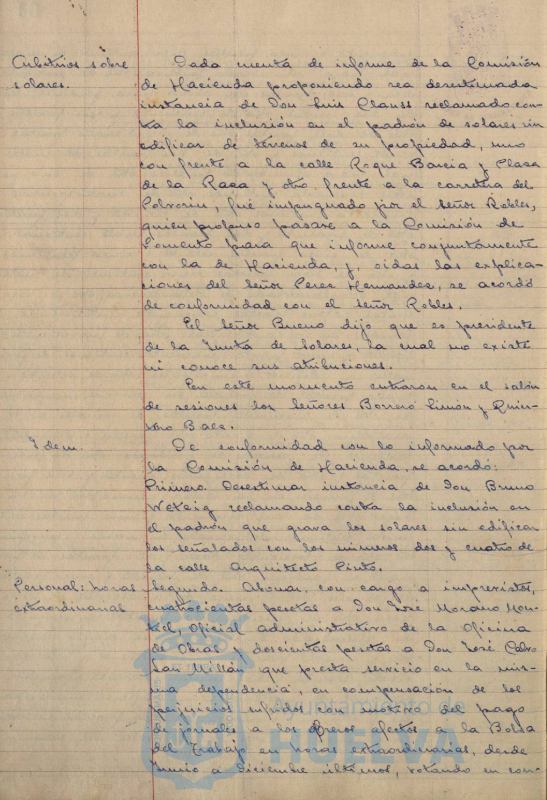 Arbitrios sobre
solares.
Dada cuenta de informe de la Comisión
de Hacienda proponiendo sea desestimada
instancia de Don Luis Clauss reclamado con-
tra la inclusión en el padrón de solares sin
edificar de terrenos de su propiedad, uno
con frente a la calle Roque Barcia y Plaza
de la Raza y otro frente a la carretera del
Polvorin, fué impugnado por el Señor Robles,
quien propuso pasase a la Comisión de
Fomento para que informe conjuntamente
con la de Hacienda, y, oidas las explica-
ciones del Señor Perez Hernandez, se acordó
de conformidad con el Señor Robles.
El Señor Bueno dijo que es presidente
de la Junta de Solares, la cual no existe
ni conoce sus atribuciones.
En este momento entraron en el salón
de sesiones los Señores Borrero Limón y Quin-
tero Baez.
Idem.
De conformidad con lo informado por
la Comisión de Hacienda, se acordó:
Primero. Desestimar instancia de Don Bruno
Wetzig reclamando contra la inclusión en
el padrón que grava los solares sin edificar
los señalados con los números dos y cuatro de
la calle Arquitecto Pinto.
Personal: horas
extraordinarias
Segundo. Abonar, con cargo a imprevistos,
cuatrocientas pesetas a Don José Morano Mon-
tiel, Oficial administrativo de la Oficina
de Obras y doscientas pesetas a Don José Calvo
San Millán que presta servicio en la mis-
ma dependencia, en compensación de los
perjuicios sufridos con motivo del pago
de jornales a los obreros afectos a la Bolsa
del Trabajo en horas extraordinarias, desde
Junio a Diciembre últimos, votando en con-
Ayuntamiento de
HUELVA